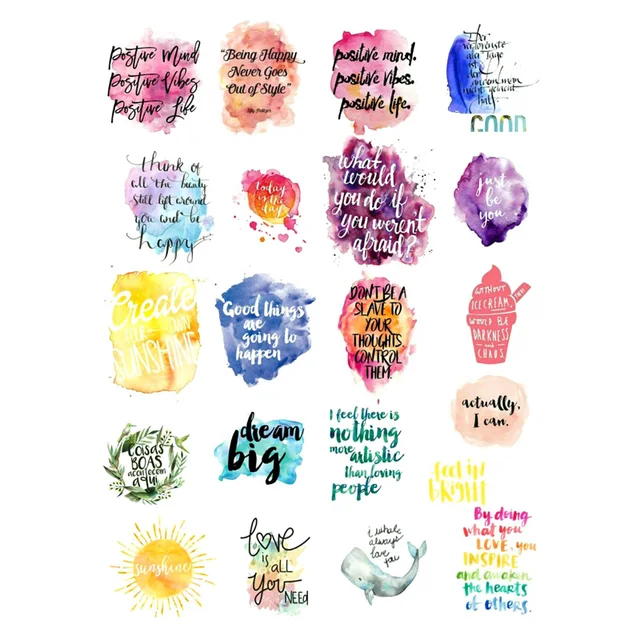 Positive Mind
Positive Vibes
Positive Life
"Being Happy
Never Goes
Out of Style"
positive mind.
positive vibes.
positive life.
Der
verlorenste
aller Tage
ist
der
an dem man
nicht gelacht
hat.
GOOD
think of
all the beauty
still left around
you and be
happy
today
is
the
day
what
would
you do if
you weren't
afraid?
just
be
you.
Create
your own
SUNSHINE
Good things
are
going to
happen
DON'T BE A
SLAVE TO
YOUR
THOUGHTS.
CONTROL
THEM.
WITHOUT
ICE CREAM,
WOULD BE
DARKNESS
and
CHAOS.
actually,
I can.
COISAS
BOAS
acontecem
aqui
dream
big
I feel there is
nothing
more artistic
than loving
people
feel it!
BRIGHT
By doing
what you
LOVE, you
INSPIRE
and awaken
the hearts
of others.
sunshine
Love
is ALL
You
NEED
i whale
always
love
you